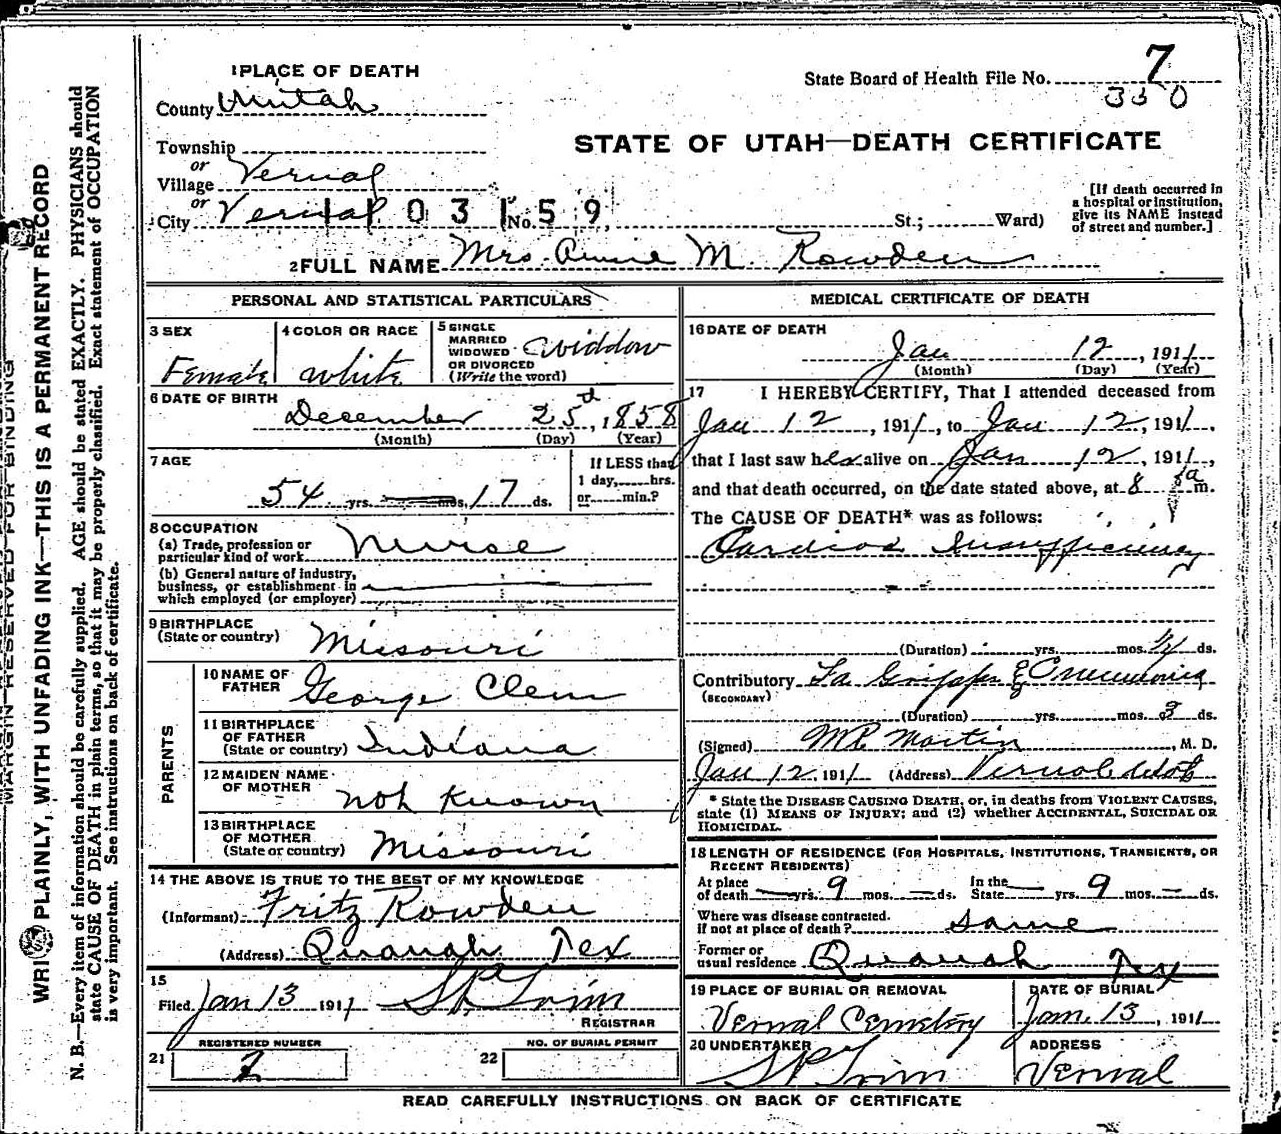 7
1 PLACE OF DEATH
State Board of Health File No.
350
County Uintah
STATE OF UTAH—DEATH CERTIFICATE
Township
or
Village Vernal
or
City Vernal 1 1 0 3 1 No. 5 9, St.; Ward)
[If death occurred in
a hospital or institution,
give its NAME instead
of street and number.]
2 FULL NAME Mrs. Annie M. Rowden
PERSONAL AND STATISTICAL PARTICULARS
3 SEX
Female
4 COLOR OR RACE
White
5 SINGLE
MARRIED
WIDOWED
OR DIVORCED
(Write the word)
Widdow
6 DATE OF BIRTH
December 25th, 1858
(Month) (Day) (Year)
7 AGE
54 yrs. ms. 17 ds.
If LESS than
1 day, hrs.
or min.?
8 OCCUPATION
(a) Trade, profession or
particular kind of work Nurse
(b) General nature of industry,
business, or establishment in
which employed (or employer)
9 BIRTHPLACE
(State or country) Missouri
PARENTS
10 NAME OF
FATHER George Clem
11 BIRTHPLACE
OF FATHER
(State or country) Indiana
12 MAIDEN NAME
OF MOTHER Not Known
13 BIRTHPLACE
OF MOTHER
(State or country) Missouri
14 THE ABOVE IS TRUE TO THE BEST OF MY KNOWLEDGE
(Informant) Fritz Rowden
(Address) Quanah Tex
15
Filed Jan 13 1911 S P Trim
REGISTRAR
21 REGISTERED NUMBER
2
22 NO. OF BURIAL PERMIT
MEDICAL CERTIFICATE OF DEATH
16 DATE OF DEATH
Jan 12, 1911
(Month) (Day) (Year)
17 I HEREBY CERTIFY, That I attended deceased from
Jan 12, 1911, to Jan 12, 1911,
that I last saw her alive on Jan 12, 1911,
and that death occurred, on the date stated above, at 8 a m.
The CAUSE OF DEATH* was as follows:
Cardiac Insufficiency
(Duration) yrs. mos. ½ ds.
Contributory La Grippe & Pneumonia
(SECONDARY)
(Duration) yrs. mos. 3 ds.
(Signed) M.R. Martin, M. D.
Jan 12, 1911 (Address) Vernal Utah
* State the DISEASE CAUSING DEATH, or, in deaths from VIOLENT CAUSES,
state (1) MEANS OF INJURY; and (2) whether ACCIDENTAL, SUICIDAL OR
HOMICIDAL.
18 LENGTH OF RESIDENCE (FOR HOSPITALS, INSTITUTIONS, TRANSIENTS, OR
RECENT RESIDENTS)
At place
of death yrs. 9 mos. ds.
In the
State yrs. 9 mos. ds.
Where was disease contracted.
if not at place of death? same
Former or
usual residence Quanah Tex
19 PLACE OF BURIAL OR REMOVAL
Vernal Cemetry
DATE OF BURIAL
Jan. 13, 1911
20 UNDERTAKER
S P Trim
ADDRESS
Vernal
READ CAREFULLY INSTRUCTIONS ON BACK OF CERTIFICATE
MARGIN RESERVED FOR BINDING
WRITE PLAINLY, WITH UNFADING INK—THIS IS A PERMANENT RECORD
N. B.—Every item of information should be carefully supplied. AGE should be stated EXACTLY. PHYSICIANS should
state CAUSE OF DEATH in plain terms, so that it may be properly classified. Exact statement of OCCUPATION
is very important. See instructions on back of certificate.